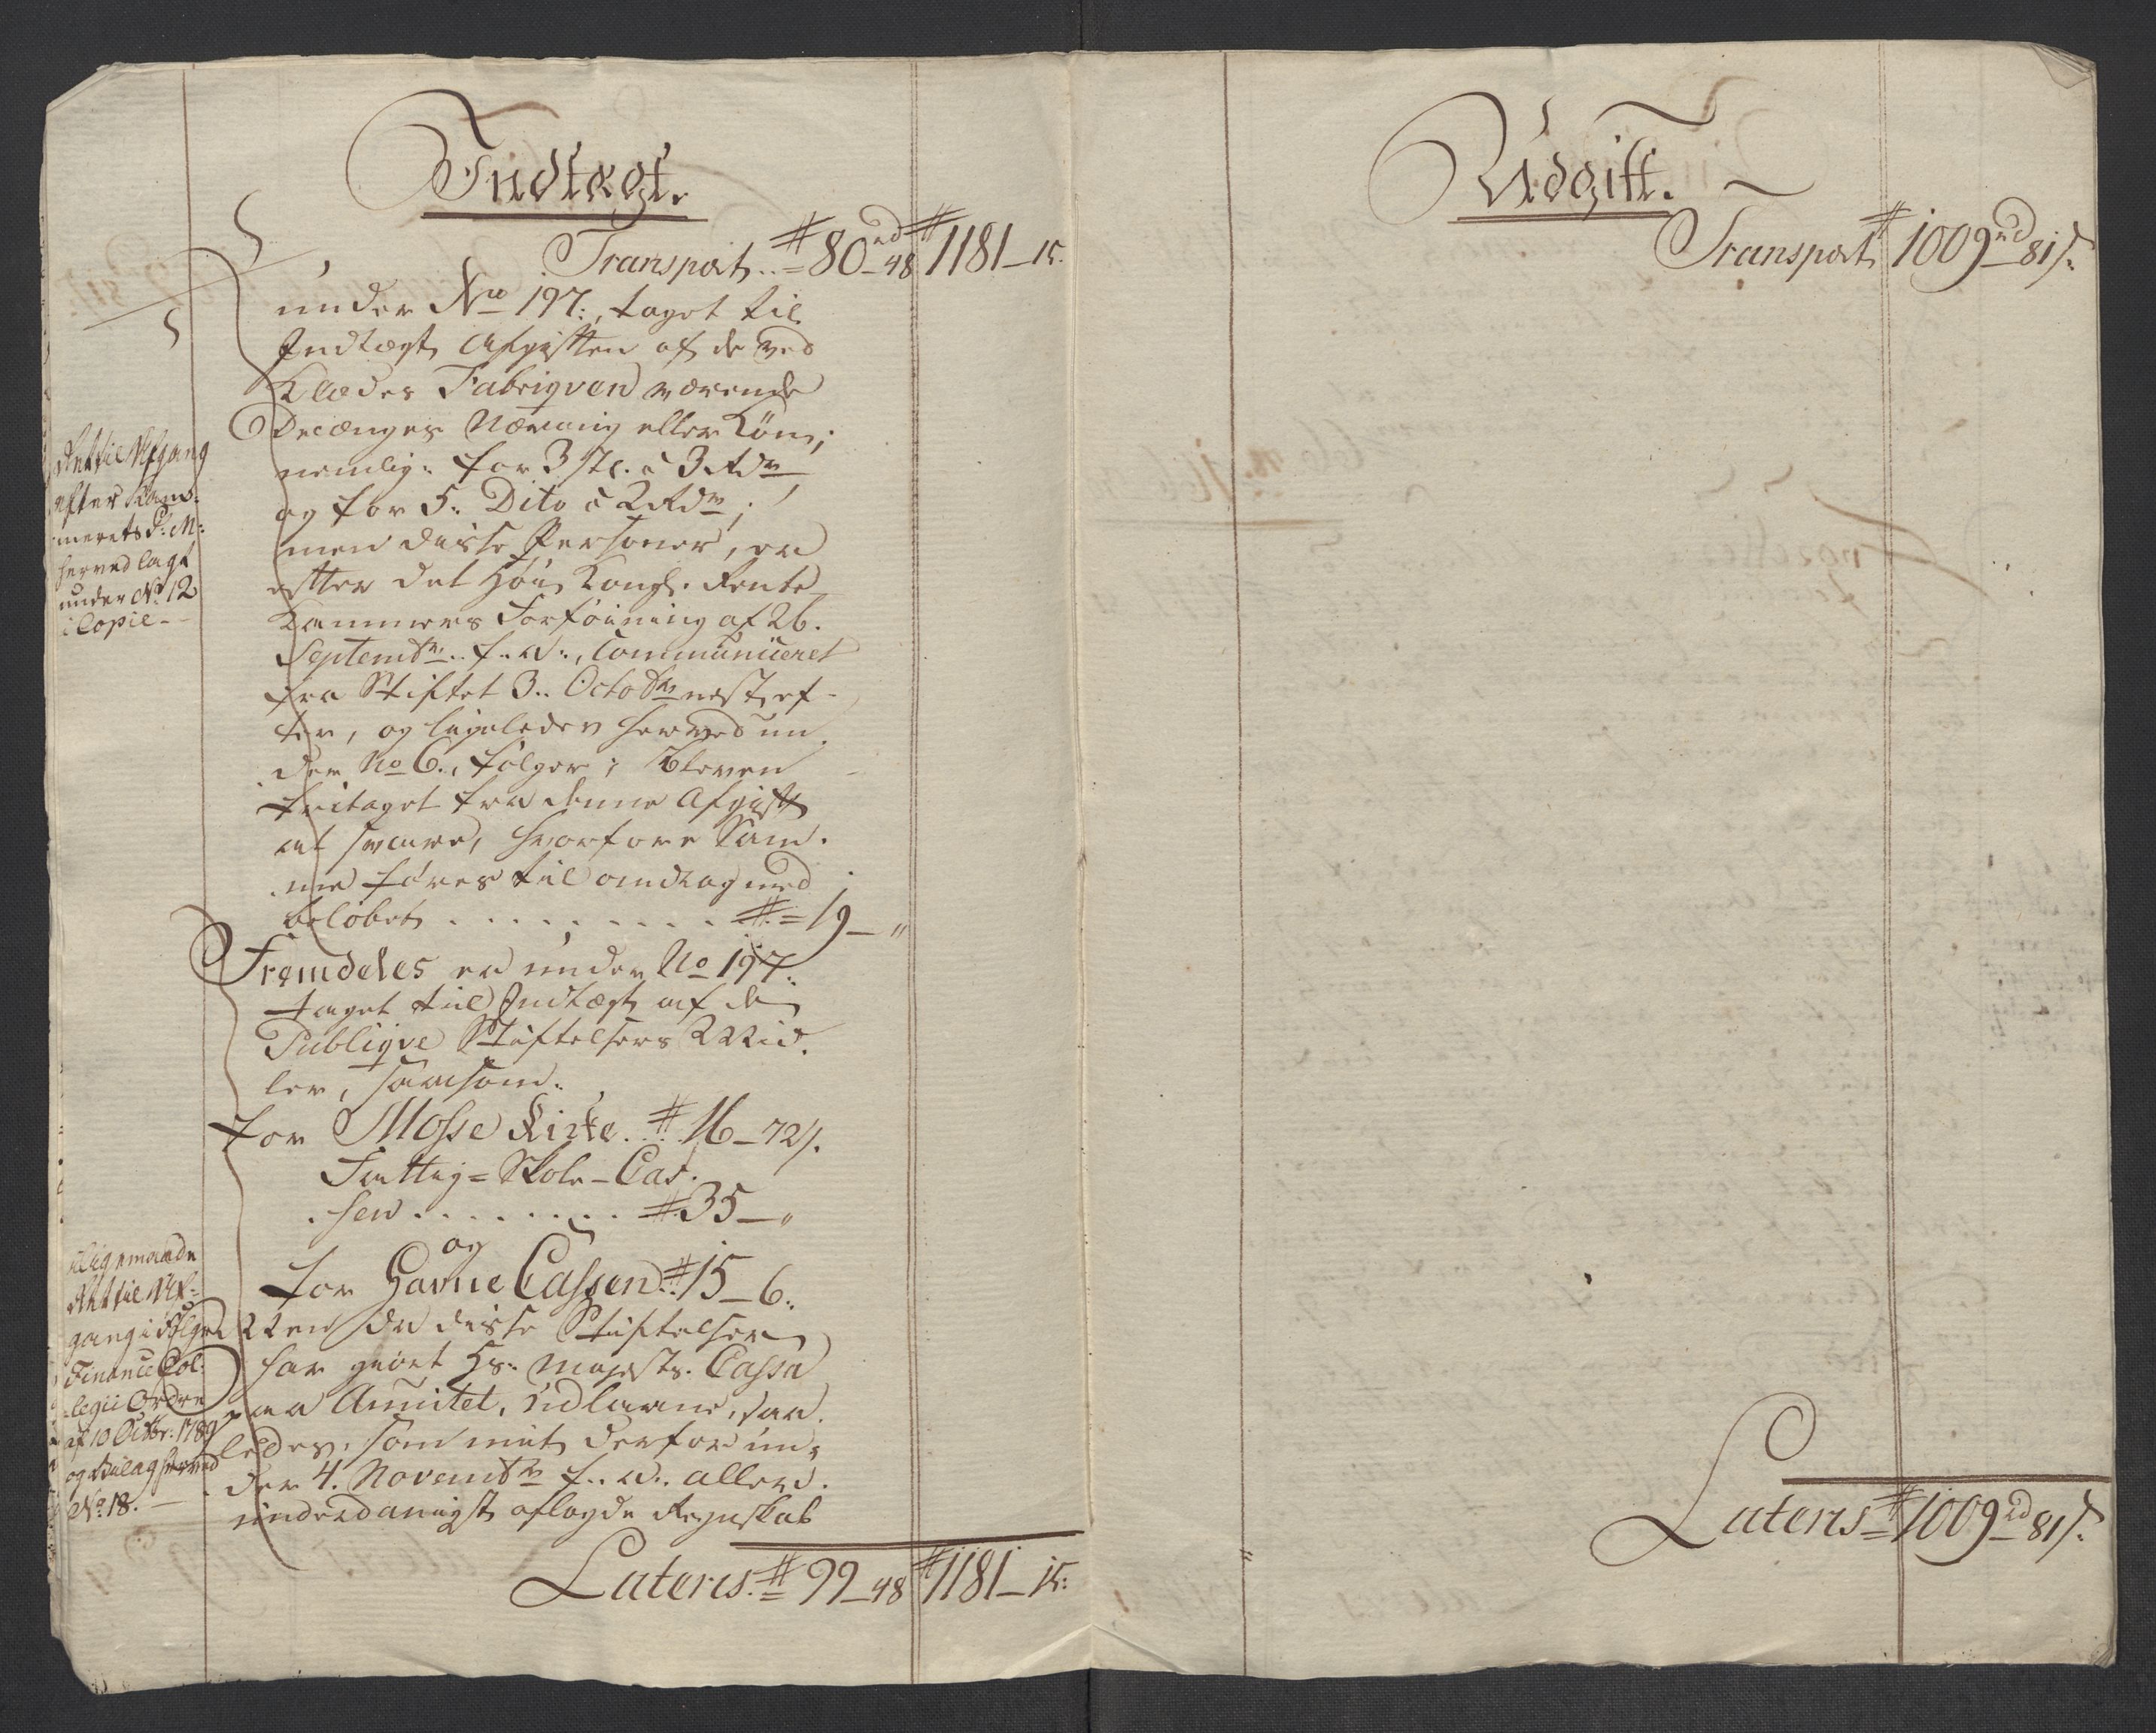 Indtægt.
Transport..# 80rd_48 # 1181_15.
under No 197:, taget til
Indtægt Afgiften af de ved
Klædes Fabriqven værende
Drænges Næring eller Løn;
nemlig: for 3 st. a 3 Rdr
og for 5: Dito a 2 Rdr;
men disse Personer, er
efter det Høie Kongl. Rente
Kammers Forføining af 26.
Septembr. f. A:, Communiceret
fra Stiftet 3.. Octobr næst ef-
ter, og ligeledes herved un-
der No 6., følger; bleven
fritaget fra denne Afgift
at svare, hvorfore Sam-
me føres til omdrag med
beløbet . . . . . . . . . #=19_"
Fremdeles er under No 197.
taget til Indtægt af de
Publiqve Stiftelsers Mid-
ler, saasom:
for Mosse Kiste. # 16_72s.
Fattig=Skole-Cas-
sen . . . . . . . . # 35_"
og
for Havne Cassen # 15_6:
Men da disse Stiftelser
har giort Hs: Majests. Cassa
paa Anuitet, Udlaane, saa-
ledes, som mit derfor un-
der 4. Novembr f. A. aller-
underdanigst aflagde Regnskab
Lateris.# 99_48 # 1181_15:
Ant til Afgang
efter Kam-
merets P: M:
herved lagt
under No 12
i Copie--
Ligemaade
Ant til Af-
gang i Følge
Finance Col-
legii Ordre
af 10 Octbr: 1789
og bilag herved
No 18. —
Udgift.
Transport # 1009rd_81s.
Lateris # 1009rd_81s.